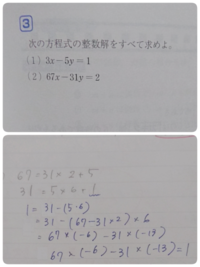 3
次の方程式の整数解をすべて求めよ。
(1) 3x-5y=1
(2) 67x-31y=2
67=31×2+5
31=5×6+1
1=31-(5·6)
=31-(67-31×2)×6
=67×(-6)-31×(-13)
67×(-6)-31×(-13)=1